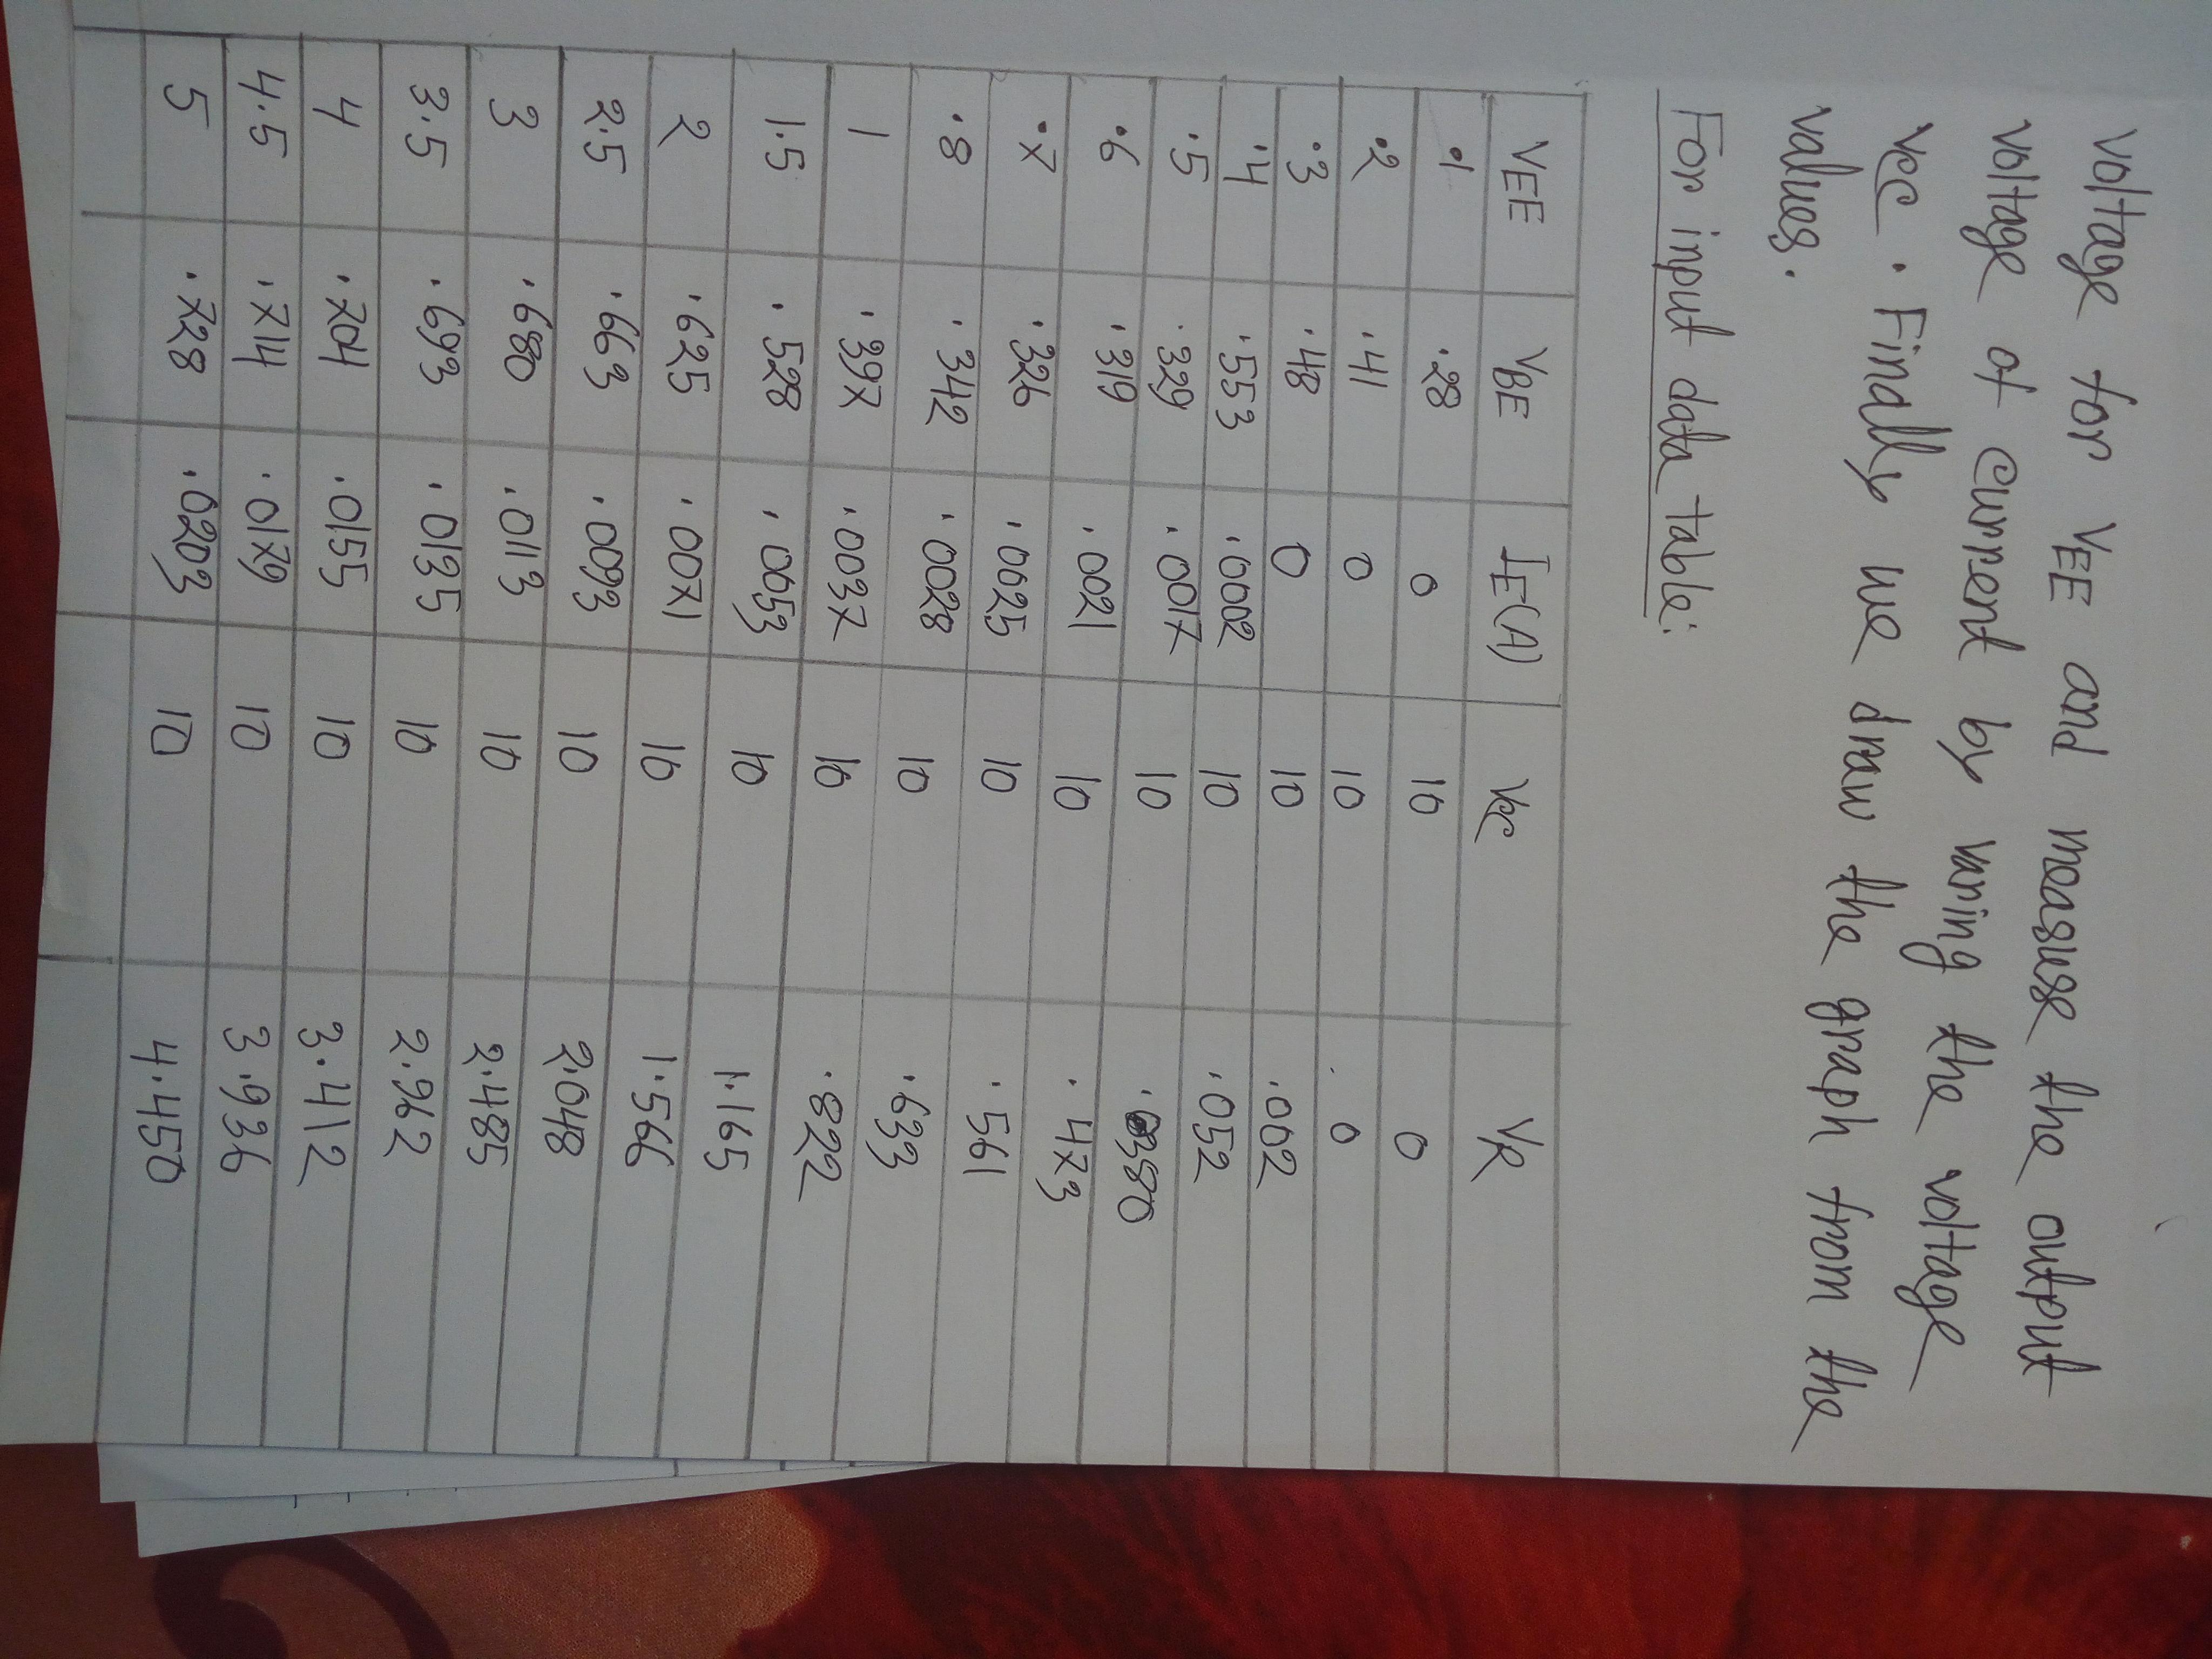 voltage for VEE and measuse the output
voltage of current by varing the voltage
Vcc. Finally we draw the graph from the
values.
For input data table:
VEE VBE IE(A) Vcc VR
.1 .28 0 10 0
.2 .41 0 10 0
.3 .48 0 10 .002
.4 .553 .0002 10 .052
.5 .329 .0017 10
.6 .319 .0021 10 .473
.7 .326 .0025 10 .561
.8 .342 .0028 10 .633
1 .397 .0037 10 .822
1.5 .528 .0053 10 1.165
2 .625 .0071 10 1.566
2.5 .663 .0093 10 2.048
3 .680 .0113 10 2.485
3.5 .693 .0135 10 2.962
4 .704 .0155 10 3.412
4.5 .714 .0179 10 3.936
5 .728 .0203 10 4.450